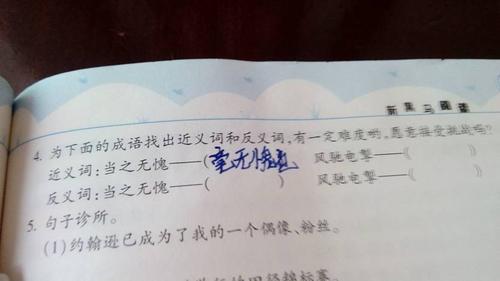 新黑马阅读
4. 为下面的成语找出近义词和反义词,有一定难度哟,愿意接受挑战吗?
近义词:当之无愧——(毫无愧色 风驰电掣——( )
反义词:当之无愧——( ) 风驰电掣——( )
5. 句子诊所。
(1)约翰逊已成为了我的一个偶像、粉丝。
的田径锦标赛